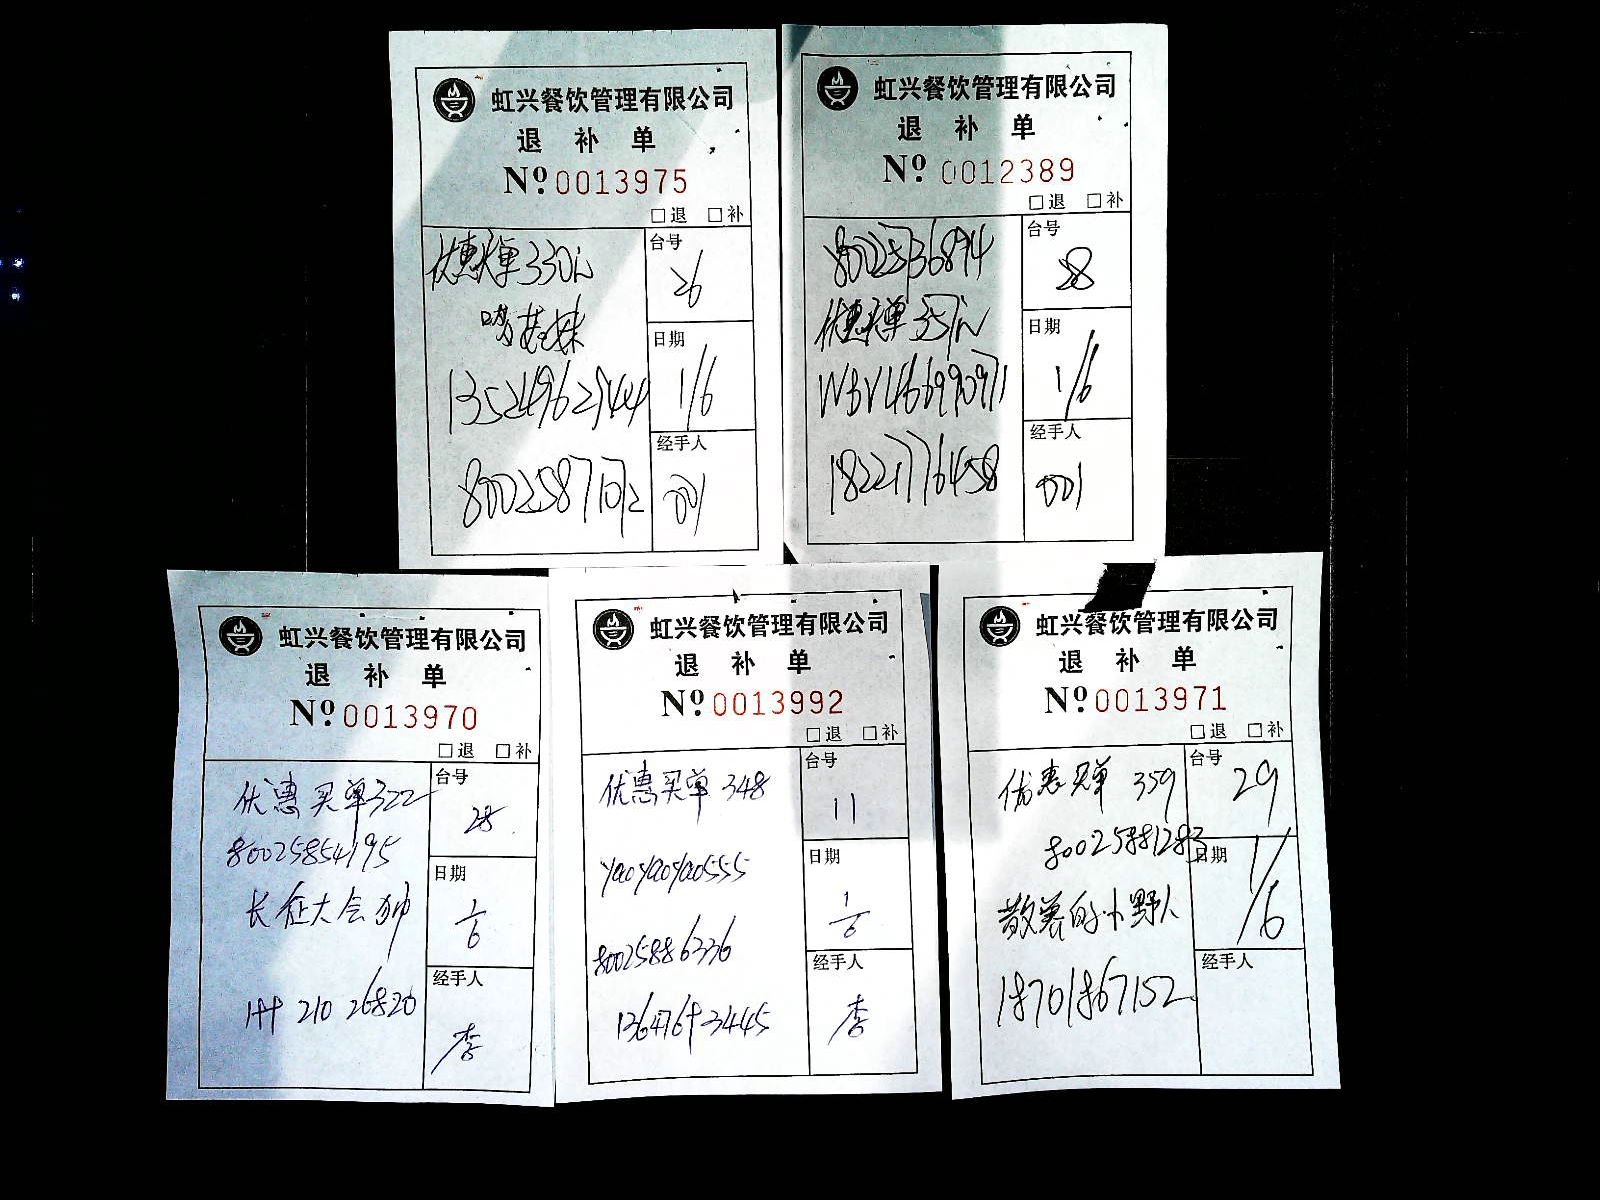 虹兴餐饮管理有限公司
退 补 单
Nº 0013975
□退 □补
优惠买单330元
台号
26
日期
1/6
13524962944
经手人
001
80025871012
虹兴餐饮管理有限公司
退 补 单
Nº 0012389
□退 □补
80025736894
台号
28
优惠买单351元
日期
1/6
WBV466990971
经手人
001
18221776458
虹兴餐饮管理有限公司
退 补 单
Nº 0013970
□退 □补
优惠买单322
台号
28
80025854195
日期
1/6
长征大会帅
经手人
李
210 26820
虹兴餐饮管理有限公司
退 补 单
Nº 0013992
□退 □补
优惠买单 348
台号
11
yaoyaoyao555
日期
1/6
80025886336
经手人
李
虹兴餐饮管理有限公司
退 补 单
Nº 0013971
□退 □补
优惠买单 359
台号
29
80025881283
日期
1/6
散养的小野人
经手人
18701867152